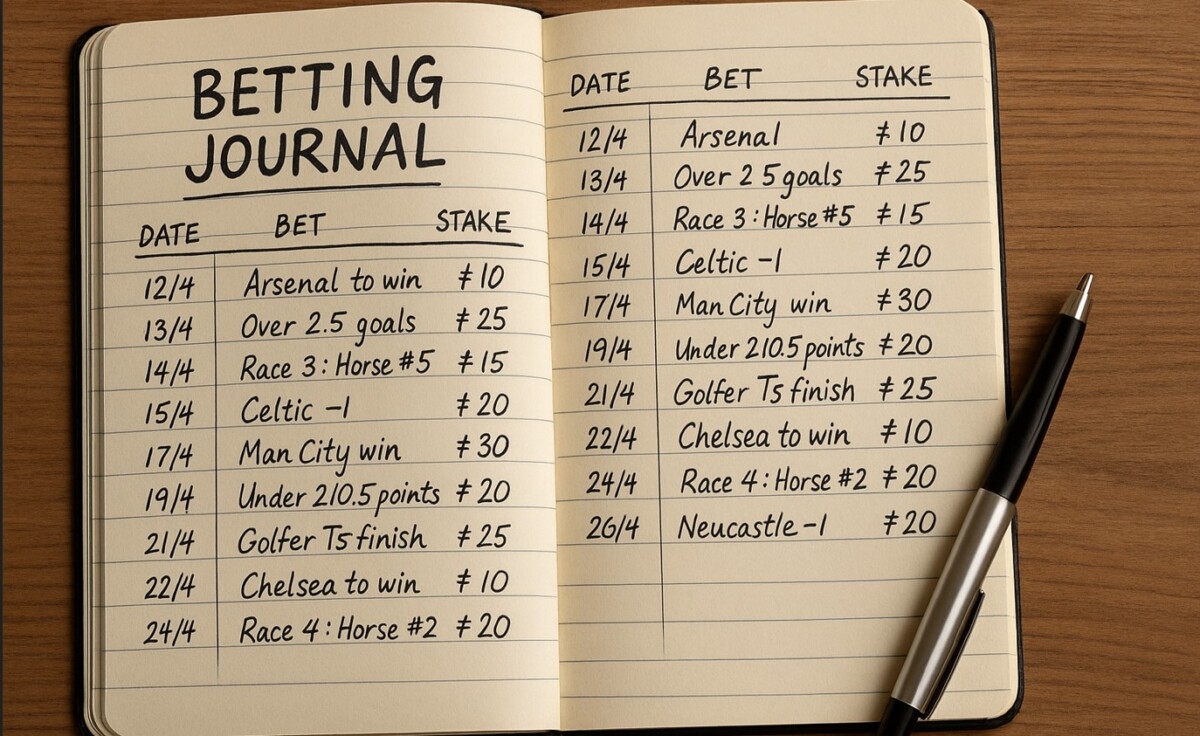 BETTING
JOURNAL
DATE BET STAKE
12/4 Arsenal to win ≠10
13/4 Over 2.5 goals ≠25
14/4 Race 3: Horse #5 ≠15
15/4 Celtic -1 ≠20
17/4 Man City win ≠30
19/4 Under 210.5 points ≠20
21/4 Golfer Ts finish ≠25
22/4 Chelsea to win ≠10
24/4 Race 4: Horse #2 ≠20
DATE BET STAKE
12/4 Arsenal ≠10
13/4 Over 2 5 goals ≠25
14/4 Race 3: Horse #5 ≠15
15/4 Celtic -1 ≠20
17/4 Man City win ≠30
19/4 Under 210.5 points ≠20
21/4 Golfer Ts finish ≠25
22/4 Chelsea to win ≠10
24/4 Race 4: Horse #2 ≠20
26/4 Neucastle -1 ≠20